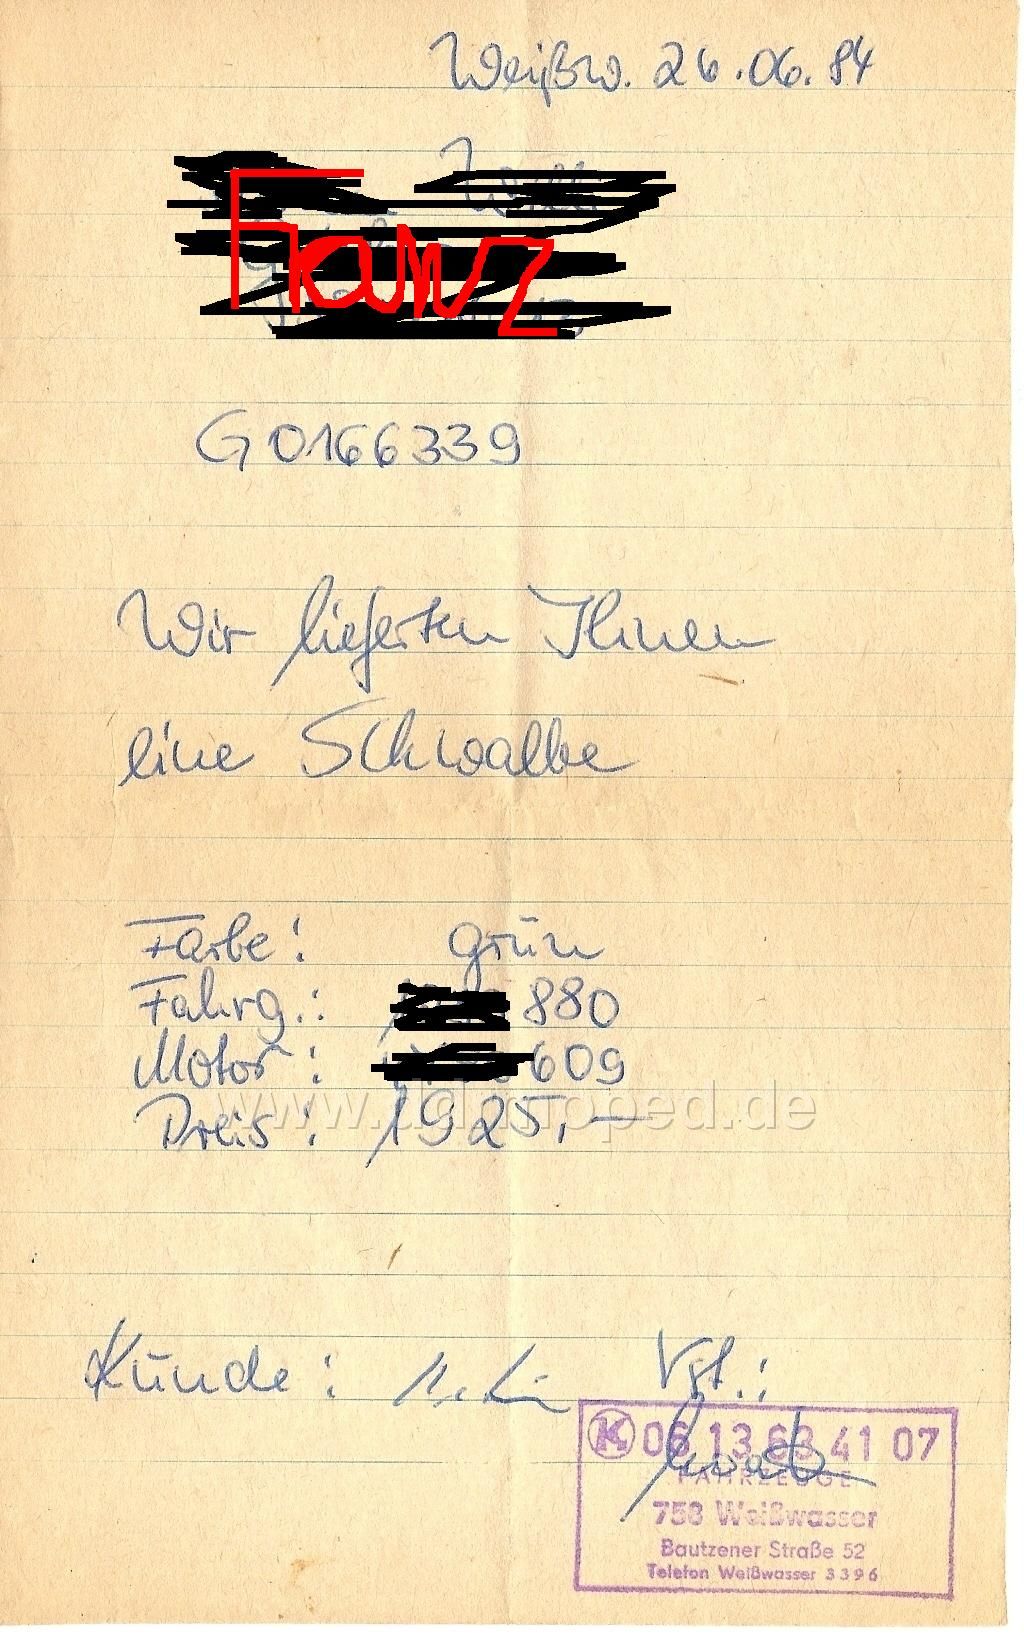 Weißw. 26.06.84
Franz
G0166339
Wir lieferten Ihnen
eine Schwalbe
Farbe: grün
Fahrg.: 880
Motor: 609
Preis: 1925,—
www.ddrmoped.de
Kunde: Vkf.:
K 06 13 63 41 07
FAHRZEUGE
758 Weißwasser
Bautzener Straße 52
Telefon Weißwasser 3396